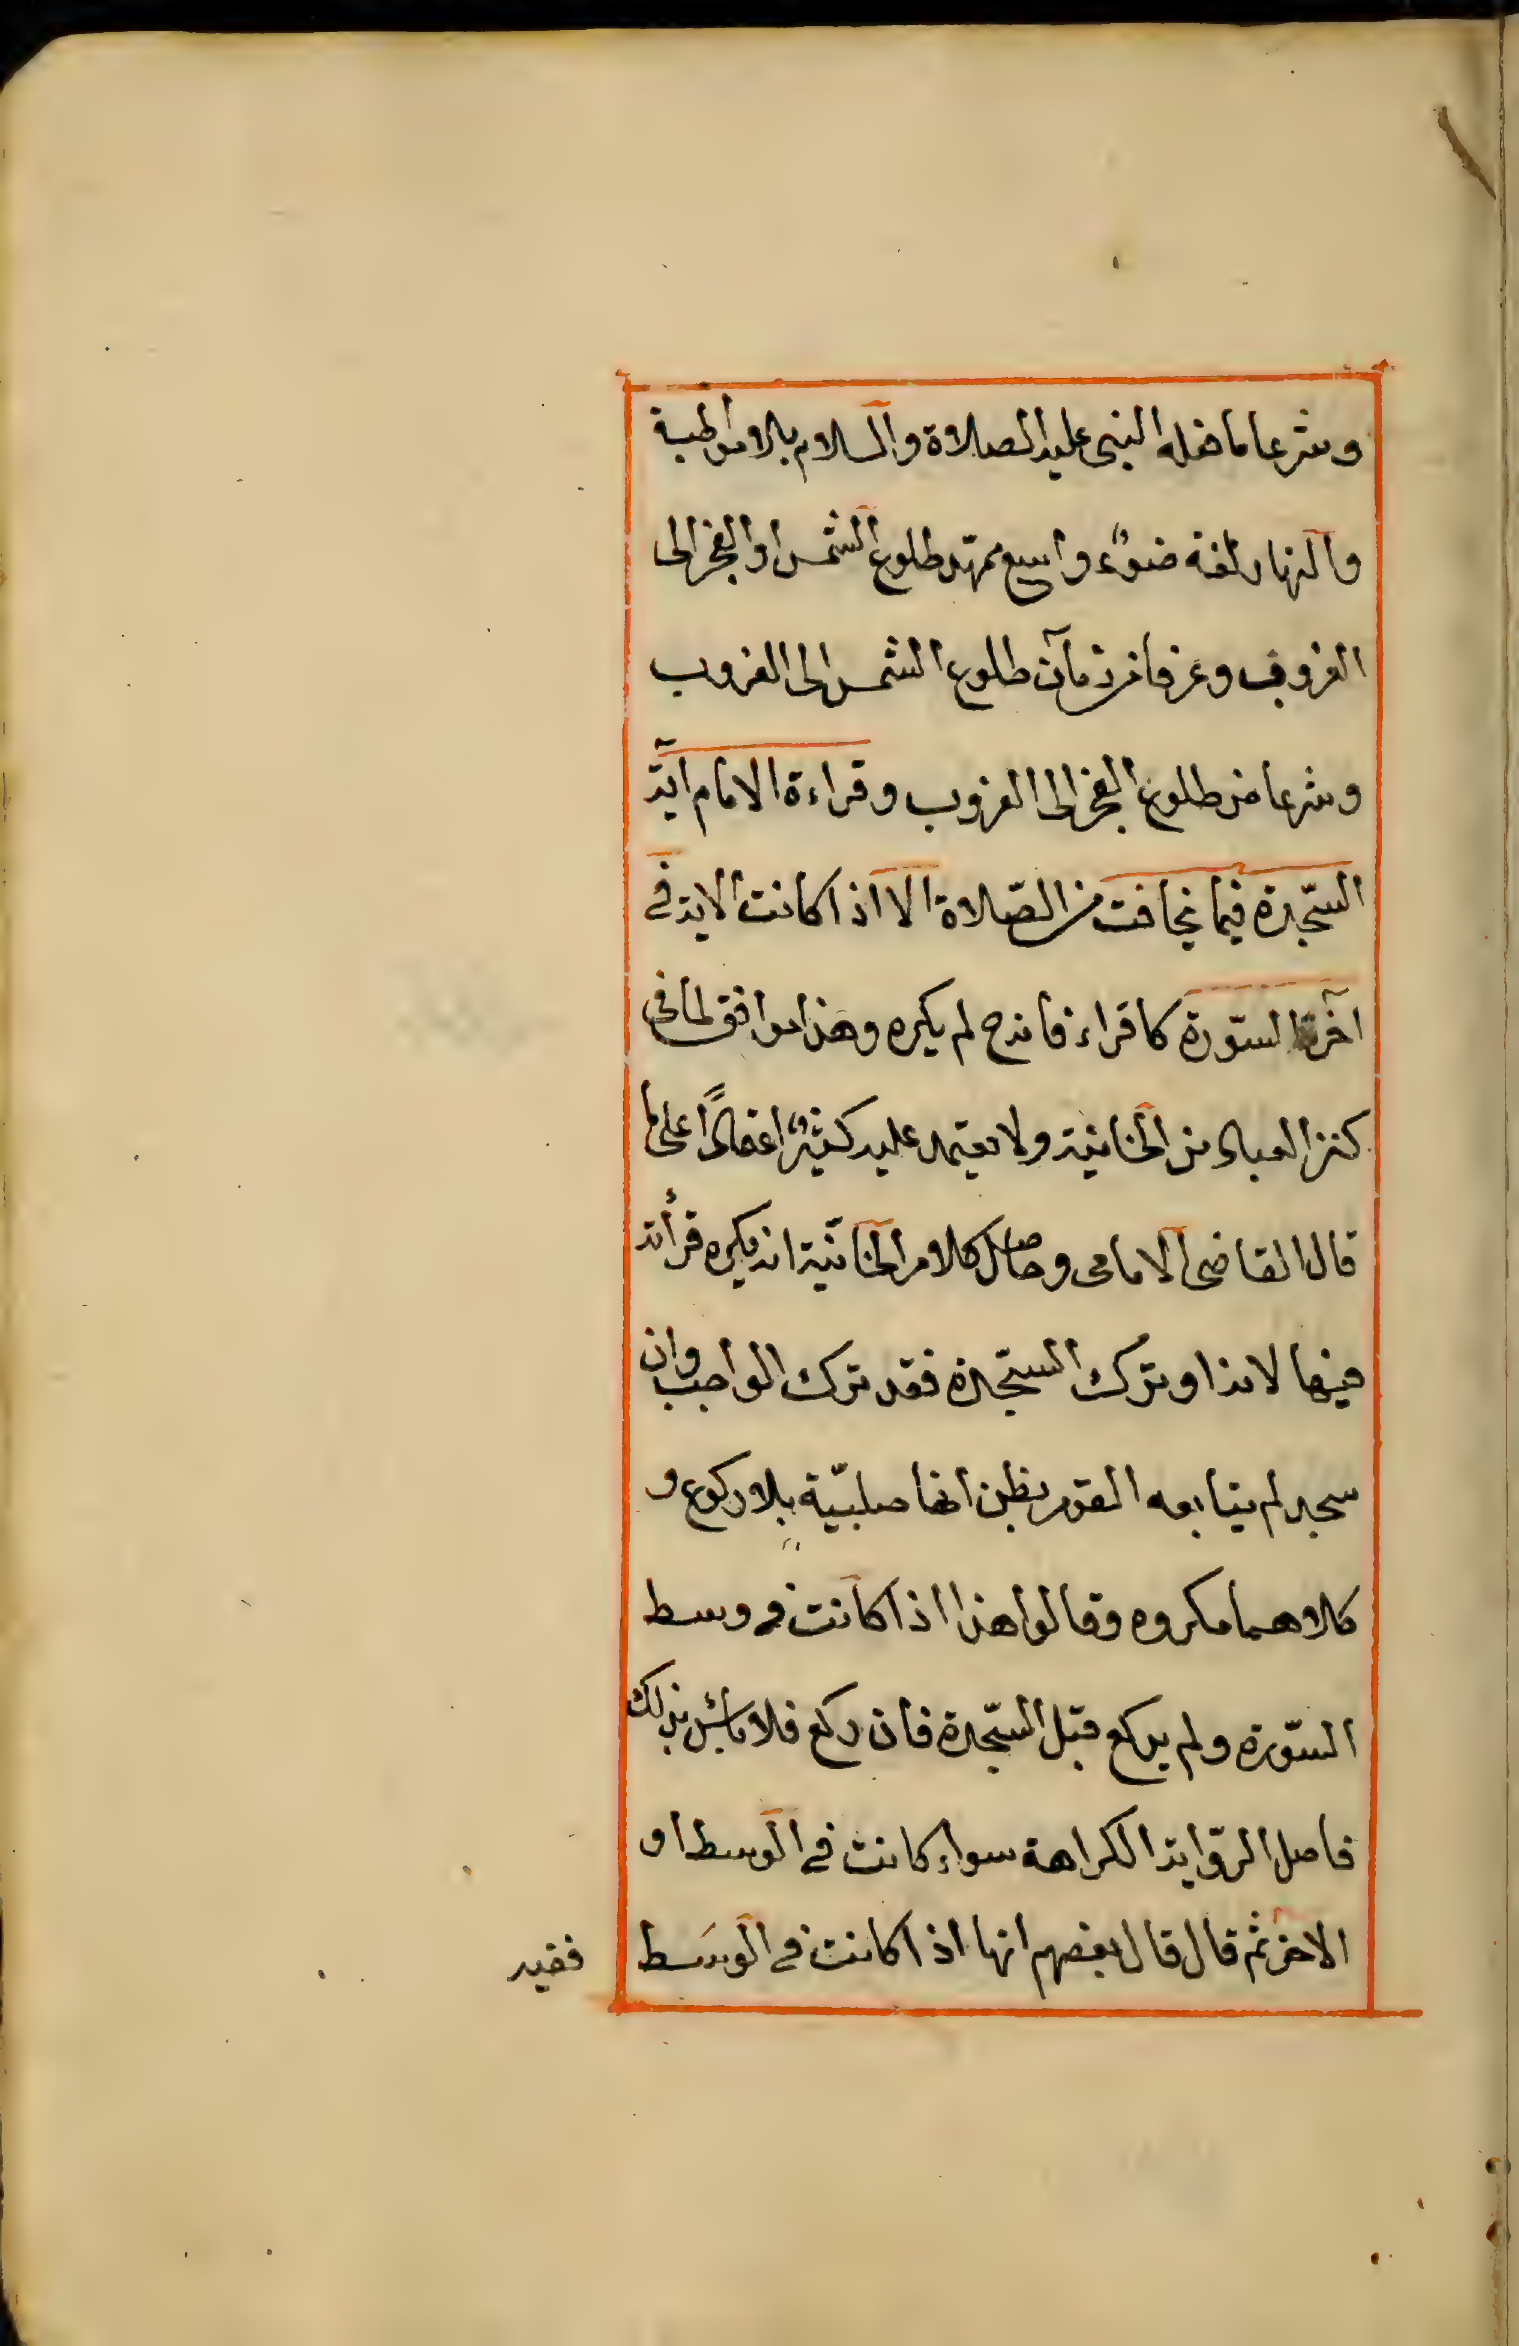 وشرعا ما فعله النبى عليه الصلاة والسلام بلا مواظبة
والنهار لغة ضوء واسع ممتد طلوع الشمس او الفجر الى
الغروب وعرفا من زمان طلوع الشمس الى الغروب
وشرعا من طلوع الفجر الى الغروب وقراءة الامام آية
السّجدة فيما يخافت من الصّلاة الا اذا كانت الاية فى
آخر السّورة كما قراء فانه ح لم يكره وهذا موافق لما فى
كنز العباد من الخانية ولا يعتمد عليه كثيرا على ما
قال القاضى الامامى وحاصل كلام الخانيّة انه يكره قرأته
فيها لانه او ترك السّجدة فقد ترك الواجب وان
سجد لم يتابعه القوم بظن انها صلبيّة بلا ركوع و
كلاهما مكروه وقالوا هذا اذا كانت فى وسط
السّورة ولم يركع قبل السّجدة فان ركع فلا بأس بذلك
فاصل الرّواية الكراهة سواء كانت فى الوسط او
الاخر ثم قال قال بعضهم انها اذا كانت فى الوسط
ففيه